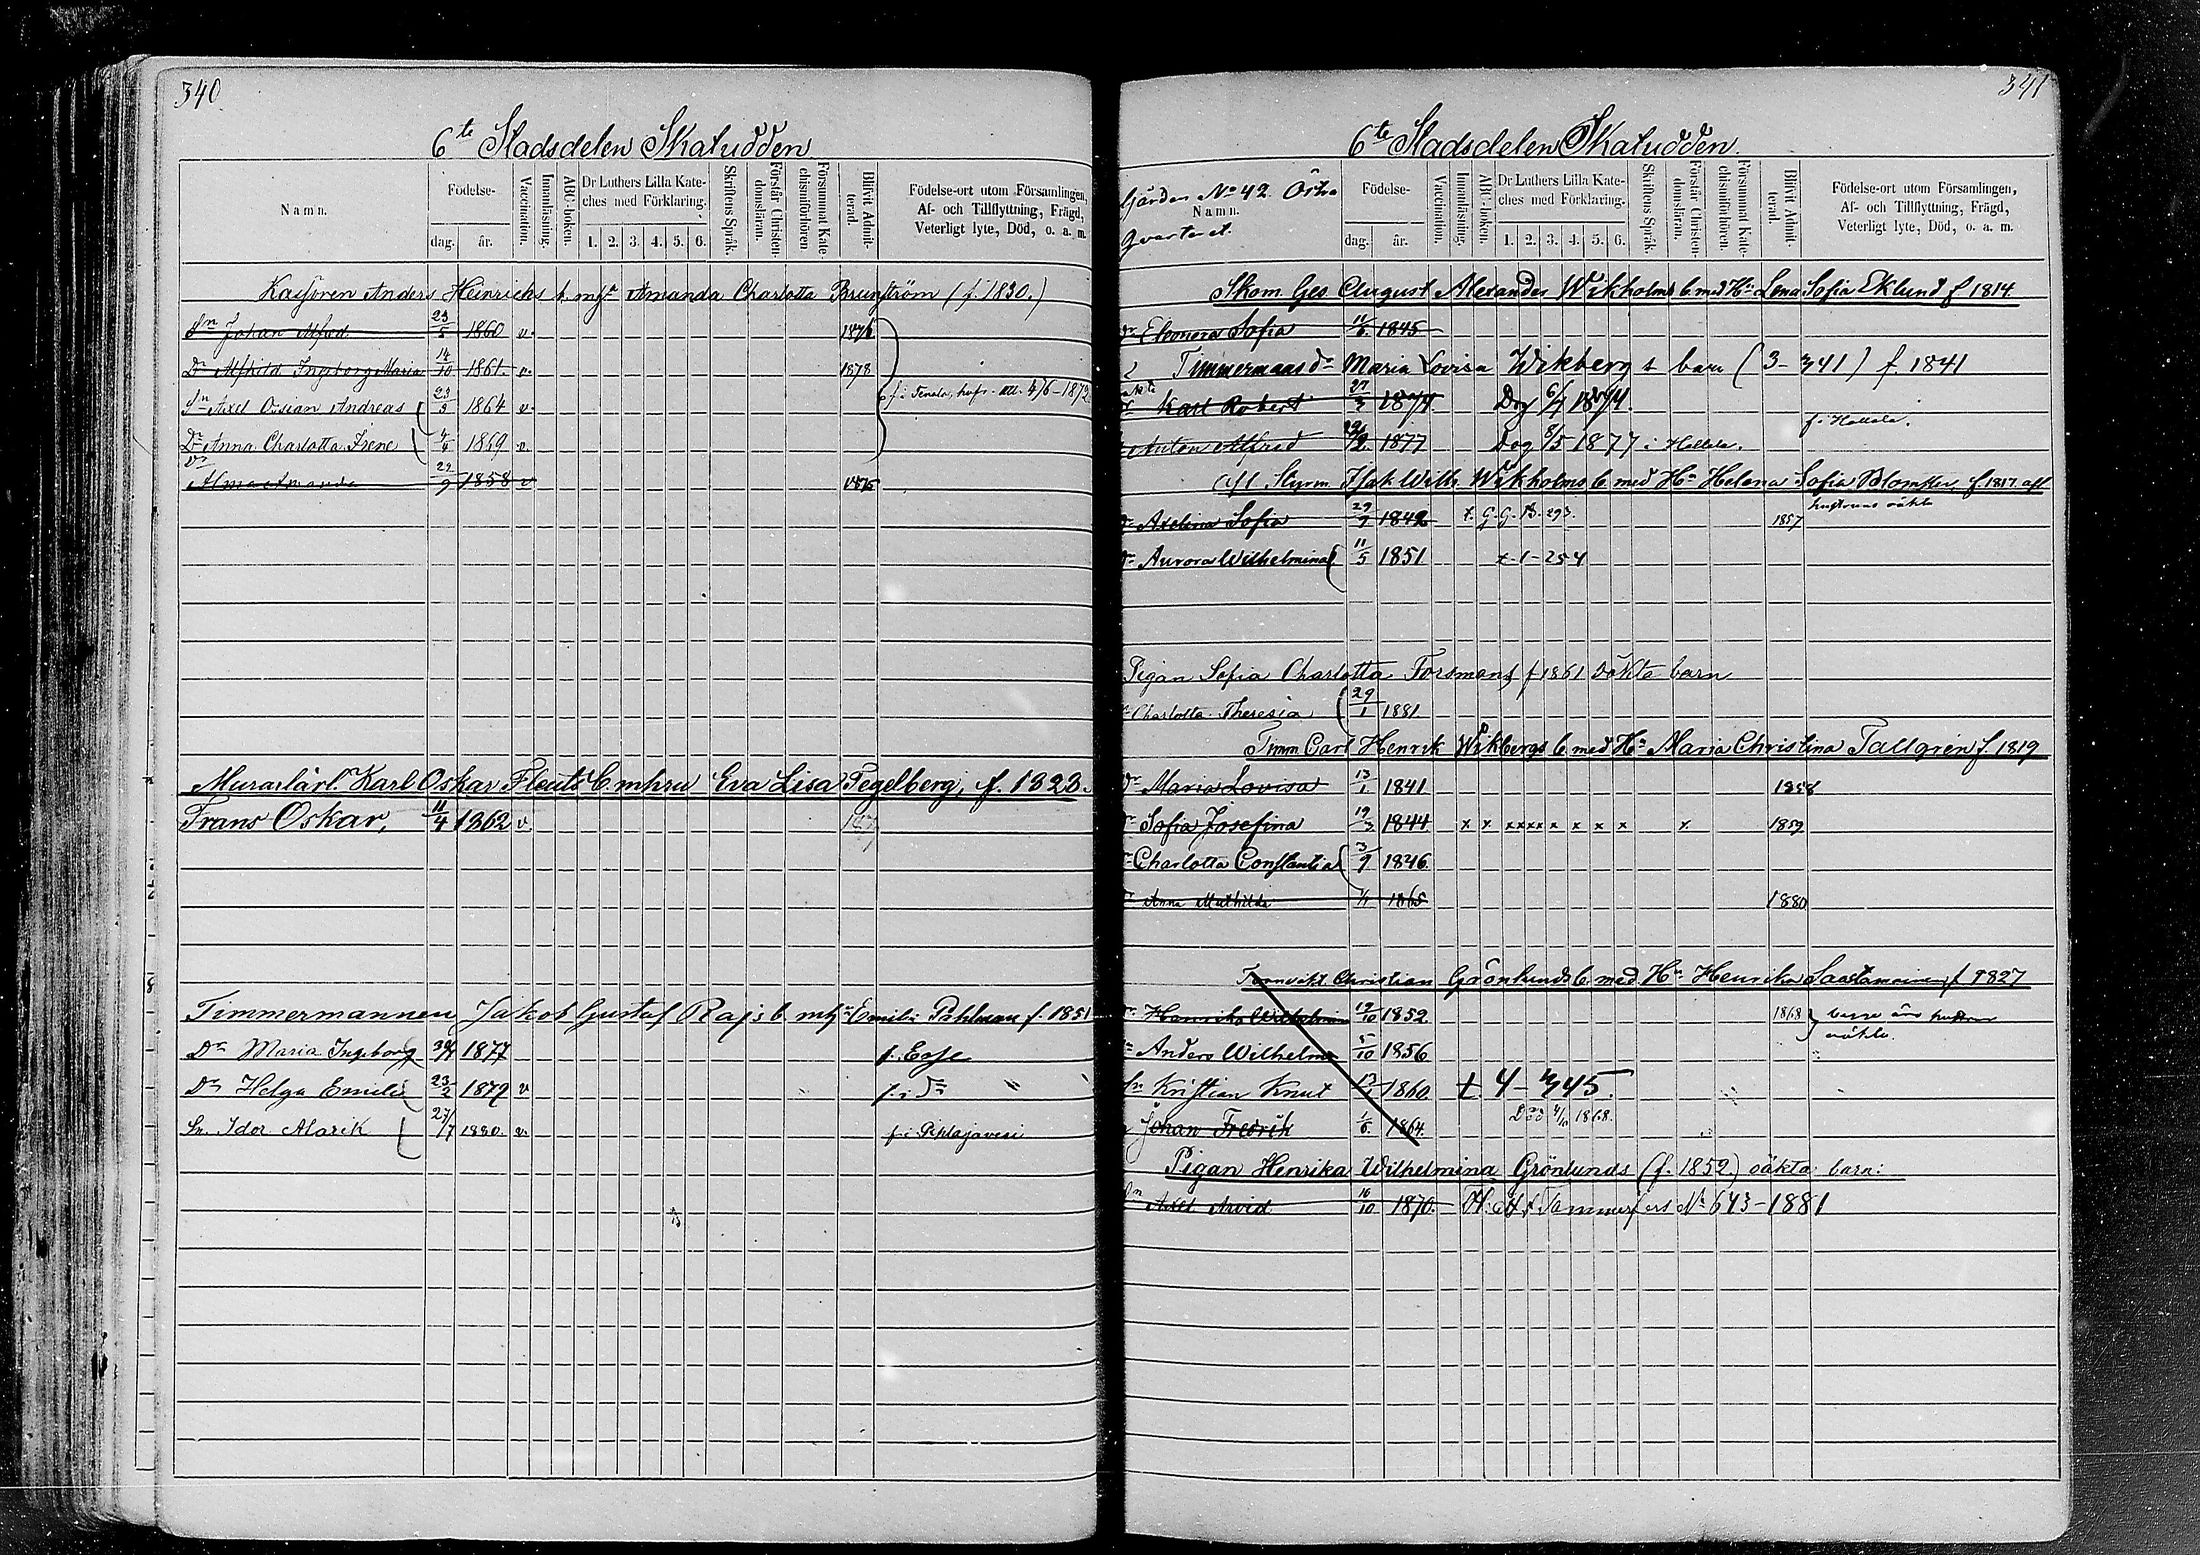 340
6te Stadsdelen Skatudden
Namn.
Födelse-
dag. år.
Vaccination.
Innanläsning.
ABC-boken.
Dr Luthers Lilla Kate-
ches med Förklaring.
1. 2. 3. 4. 5. 6.
Skriftens Språk.
Förstår Christen-
domsläran.
Försummat Kate-
chismiförhören
Blifvit Admit-
terad.
Födelse-ort utom Församlingen,
Af- och Tillflyttning, Frägd,
Veterligt lyte, Död, o. a. m.
Anders Heinrichs b. Amanda Charlotta Brunström (f. 1830.)
Sn Johan Alfred 23/5 1860 v.
Dr Ingeborg Maria 14/10 1861 v. 1878
Sn Axel Ossian Andreas 23/3 1864 v. f. i Tenala, 4/6-1872
Dr Anna Charlotta Irene 1869 v.
Dr Alma Amanda 29/9 1858 v 1875
Murarlärl. Karl Oskar b. m hru Eva Lisa Tegelberg, f. 1823.
Frans Oskar, 11/4 1862 v.
Timmermannen Jakob Gustaf Rajs b. Emili Pahlman f. 1851
Dr Maria Ingeborg 1877 f. Esse
Dr Helga Emilie 23/2 1879 v f. i Do
Sn. Idor Alarik 27/7 1880. v. f. i Pihlajavesi
341
6te Stadsdelen Skatudden.
Gården No 42 Östra
Namn.
Qvarteret.
Födelse-
dag. år.
Vaccination.
Innanläsning.
ABC-boken.
Dr Luthers Lilla Kate-
ches med Förklaring.
1. 2. 3. 4. 5. 6.
Skriftens Språk.
Förstår Christen-
domsläran.
Försummat Kate-
chismiförhören.
Blifvit Admit-
terad.
Födelse-ort utom Församlingen,
Af- och Tillflyttning, Frägd,
Veterligt lyte, Död, o. a. m.
Skom. Ges August Alexander Wikholms b. med Hu Lena Sofia Eklund f 1814.
Dr Eleonora Sofia 11/6 1845
Timmermans dr Maria Lovisa Wikbergs barn (3-341) f. 1841
Karl Robert 27/3 1874. Dog 6/7 1874.
f. i Hollola.
Anton Alfred 1877 Dog 8/5 1877 i Hollola.
Afl Styrm Isak Wilh. Wikholms b. med Hu Helena Sofia Blomster f. 1817. afl
hustruns oäkta
Dr Axelina Sofia 29/9 1842 t. G. G. B. 293. 1857
Dr Aurora Wilhelmina 11/5 1851 t-1-254
Pigan Sofia Charlotta Forsmans f 1861 oäkta barn
Charlotta Theresia 29/1 1881
Timm Carl Henrik Wikbergs b. med Hu Maria Christina Tallgren f. 1819
Dr Maria Lovisa 13/1 1841 1858
Dr Sofia Josefina 19/3 1844 x x xxxx x x x x x 1859
Charlotta Constantia 3/9 1846
Anna Mathilda 1865 1880
Christian Grönlunds b. med Hu Henrika Saastamoinen f 1827
Henrika Wilhelmina 19/10 1852 1868 hustrus
oäkta.
Anders Wilhelm 5/10 1856
Sn Kristian Knut 1860. t. 4-345.
Johan Fredrik 1/6 1864. Död 4/10 1868.
Pigan Henrika Wilhelmina Grönlunds (f. 1852.) oäkta barn:
Sn Axel Arvid 16/10 1870. Tammerfors No 643-1881